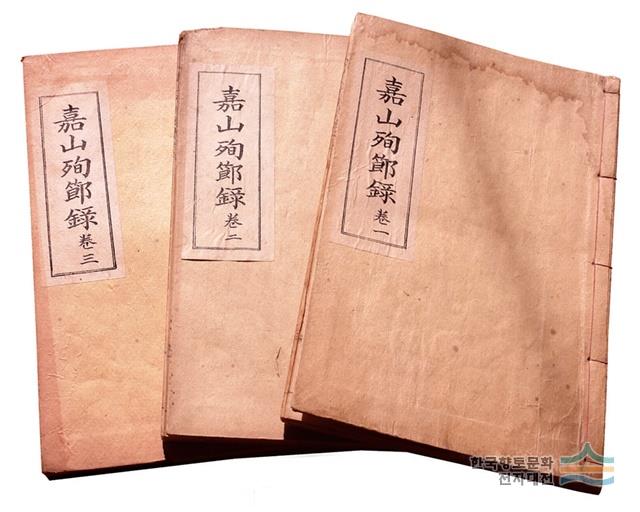 嘉山殉節錄 卷三
嘉山殉節錄 卷二
嘉山殉節錄 卷一
한국향토문화
전자대전